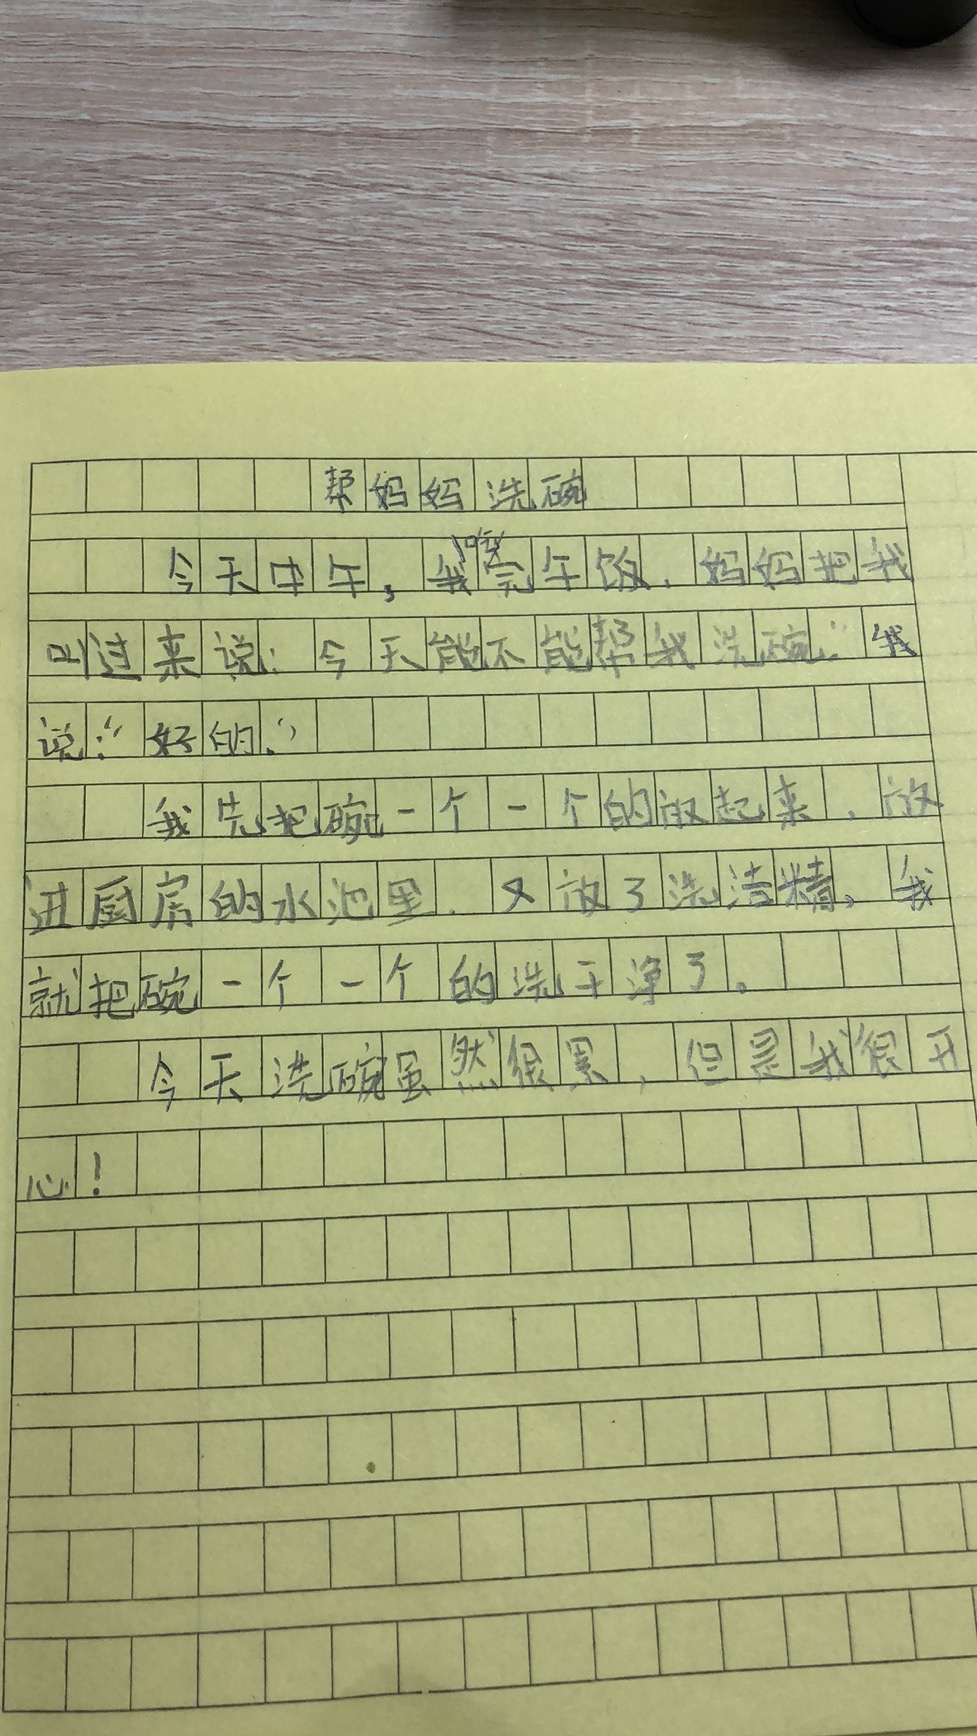 帮妈妈洗碗
今天中午，我吃完午饭，妈妈把我
叫过来说：今天能不能帮我洗碗.”我
说：“好的。”
我先把碗一个一个的放起来，放
进厨房的水池里，又放了洗洁精。我
就把碗一个一个的洗干净了。
今天洗碗虽然很累，但是我很开
心！